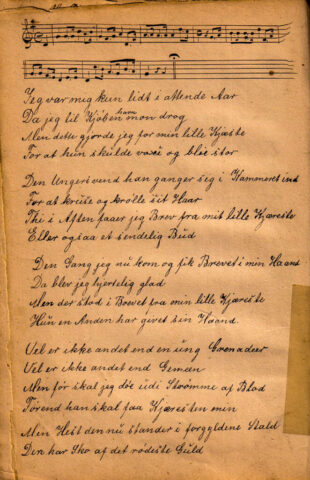 Jeg var mig kun lidt i attende Aar
Da jeg til Kjøbenhavn mon drog
Men dette gjorde jeg for min lille Kjæreste
For at hun skulde voxe og blie stor
Den Ungersvend han ganger seg i Kammeret ind
For at kruse og krølle sit Haar
Thi i Aften faaer jeg Brev fra mit lille Kjæreste
Eller ogsaa et sendelig Bud
Den Gang jeg nu kom og fik Brevet i min Haand
Da blev jeg hjertelig glad
Men der stod i Brevet fra min lille Kjæreste
Hun en Anden har givet sin Haand.
Vel er ikke andet end en ung Grenadeer
Vel er ikke andet end Gemeen
Men før skal jeg døe udi Strømme af Blod
Førend han skal faa Kjæresten min
Men Hest den nu stander i forgyldene Stald
Den har Sko af det rødeste Guld